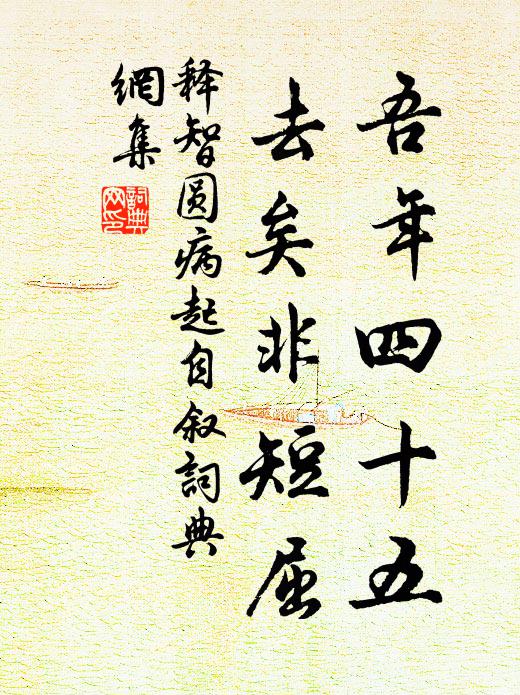 吾年四十五
去矣非短屈
释智圆病起自叙詞典
網集
詞典
网印